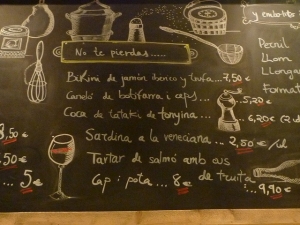 y embotits
No te pierdas.....
Pernil
Llom
Llonga
Format
Bikini de jamón iberico y trufa...7,50 €
Caneló de botifarra i ceps... 5,20 €
Coca de tataki de tonyina... 6,20 € /2 u
Sardina a la veneciana... 2,50 € /u
Tartar de salmó amb ous de truita... 9,90 €
Cap i pota... 8 €
8,50 €
,50 €
... 5 €